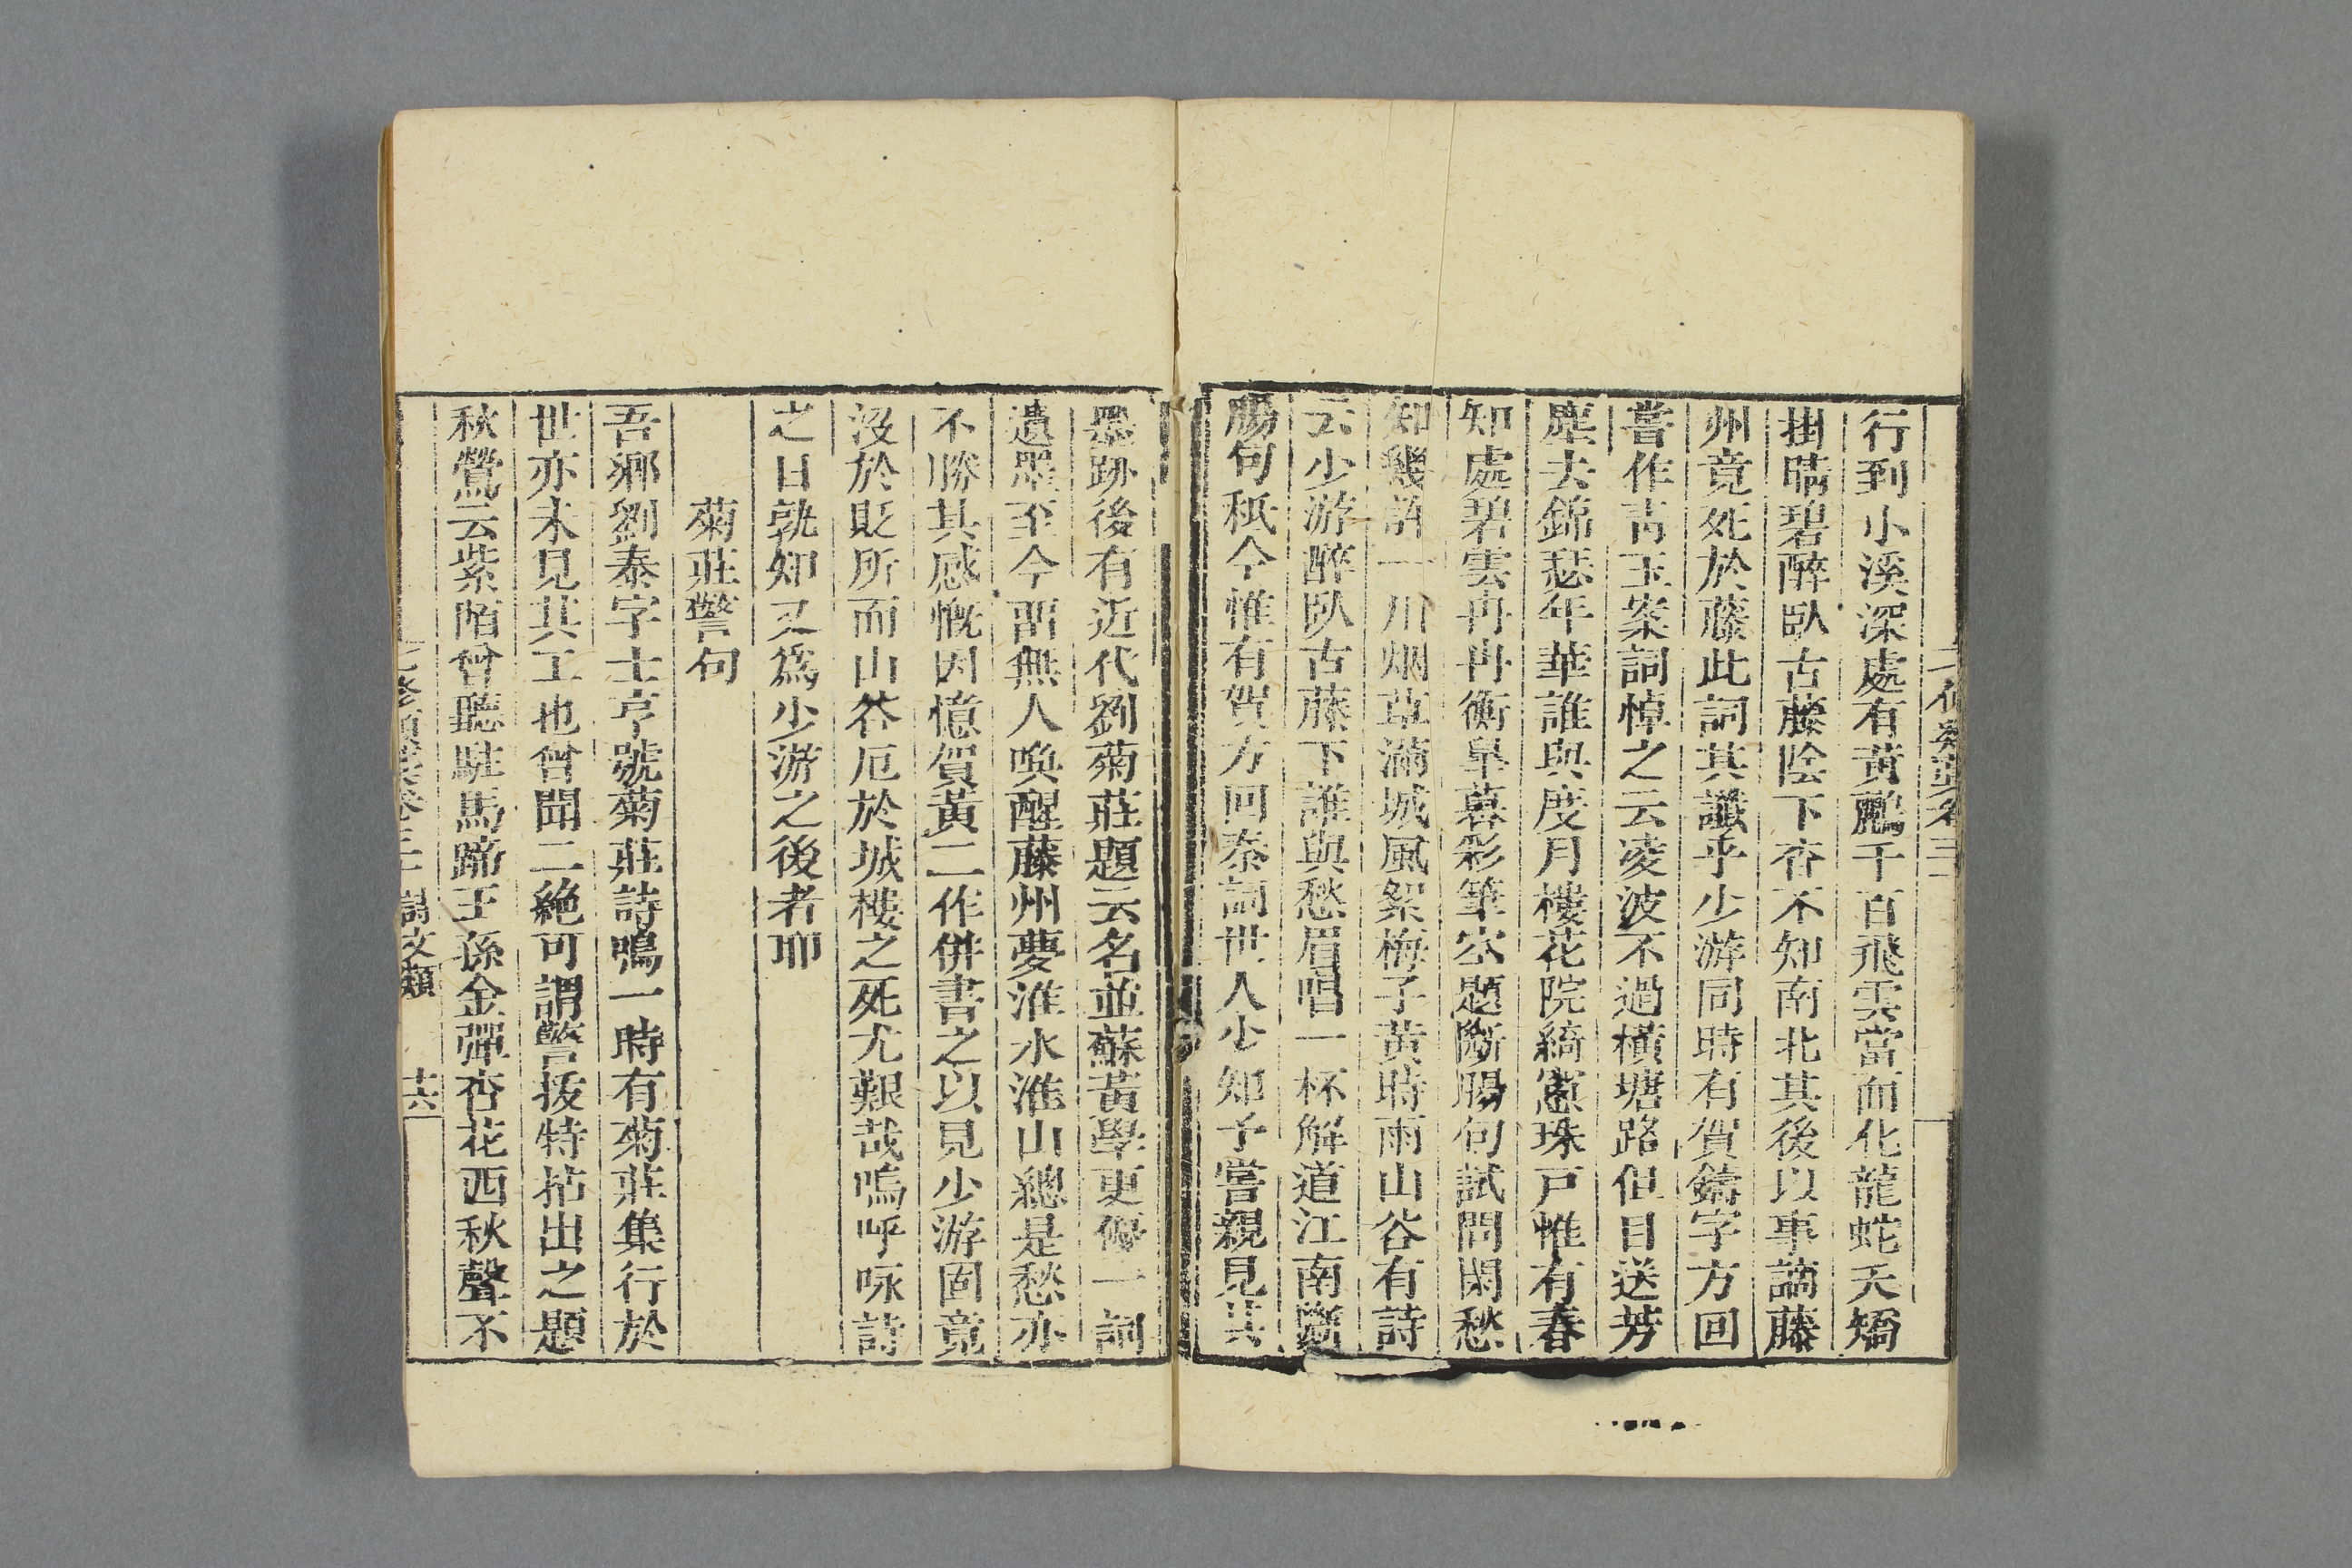 行到小溪深處有黃鸝千百飛雲當面化龍蛇夭矯
掛晴碧醉臥古藤陰下杳不知南北其後以事謫藤
州竟死於藤此詞其讖乎少游同時有賀鑄字方回
嘗作青玉案詞悼之云凌波不過橫塘路但目送芳
塵去錦瑟年華誰與度月樓花院綺窻珠戶惟有春
知處碧雲冉冉衡臯暮彩筆空題斷腸句試問閑愁
知幾許一川烟草滿城風絮梅子黃時雨山谷有詩
云少游醉臥古藤下誰與愁眉唱一杯解道江南斷
腸句秖今惟有賀方回秦詞世人少知予嘗親見其
墨跡後有近代劉菊莊題云名並蘇黃學更優一詞
遺墨至今留無人喚醒藤州夢淮水淮山總是愁亦
不勝其感慨因憶賀黃二作併書之以見少游固竟
沒於貶所而山谷厄於城樓之死尤艱哉嗚呼咏詩
之日孰知又爲少游之後者耶
菊莊警句
吾鄉劉泰字士亨號菊莊詩鳴一時有菊莊集行於
世亦未見其工也曾聞二絕可謂警拔特拈出之題
秋鶯云紫陌曾聽駐馬蹄王孫金彈杏花西秋聲不
七修類藁卷三十 詩文類 十六